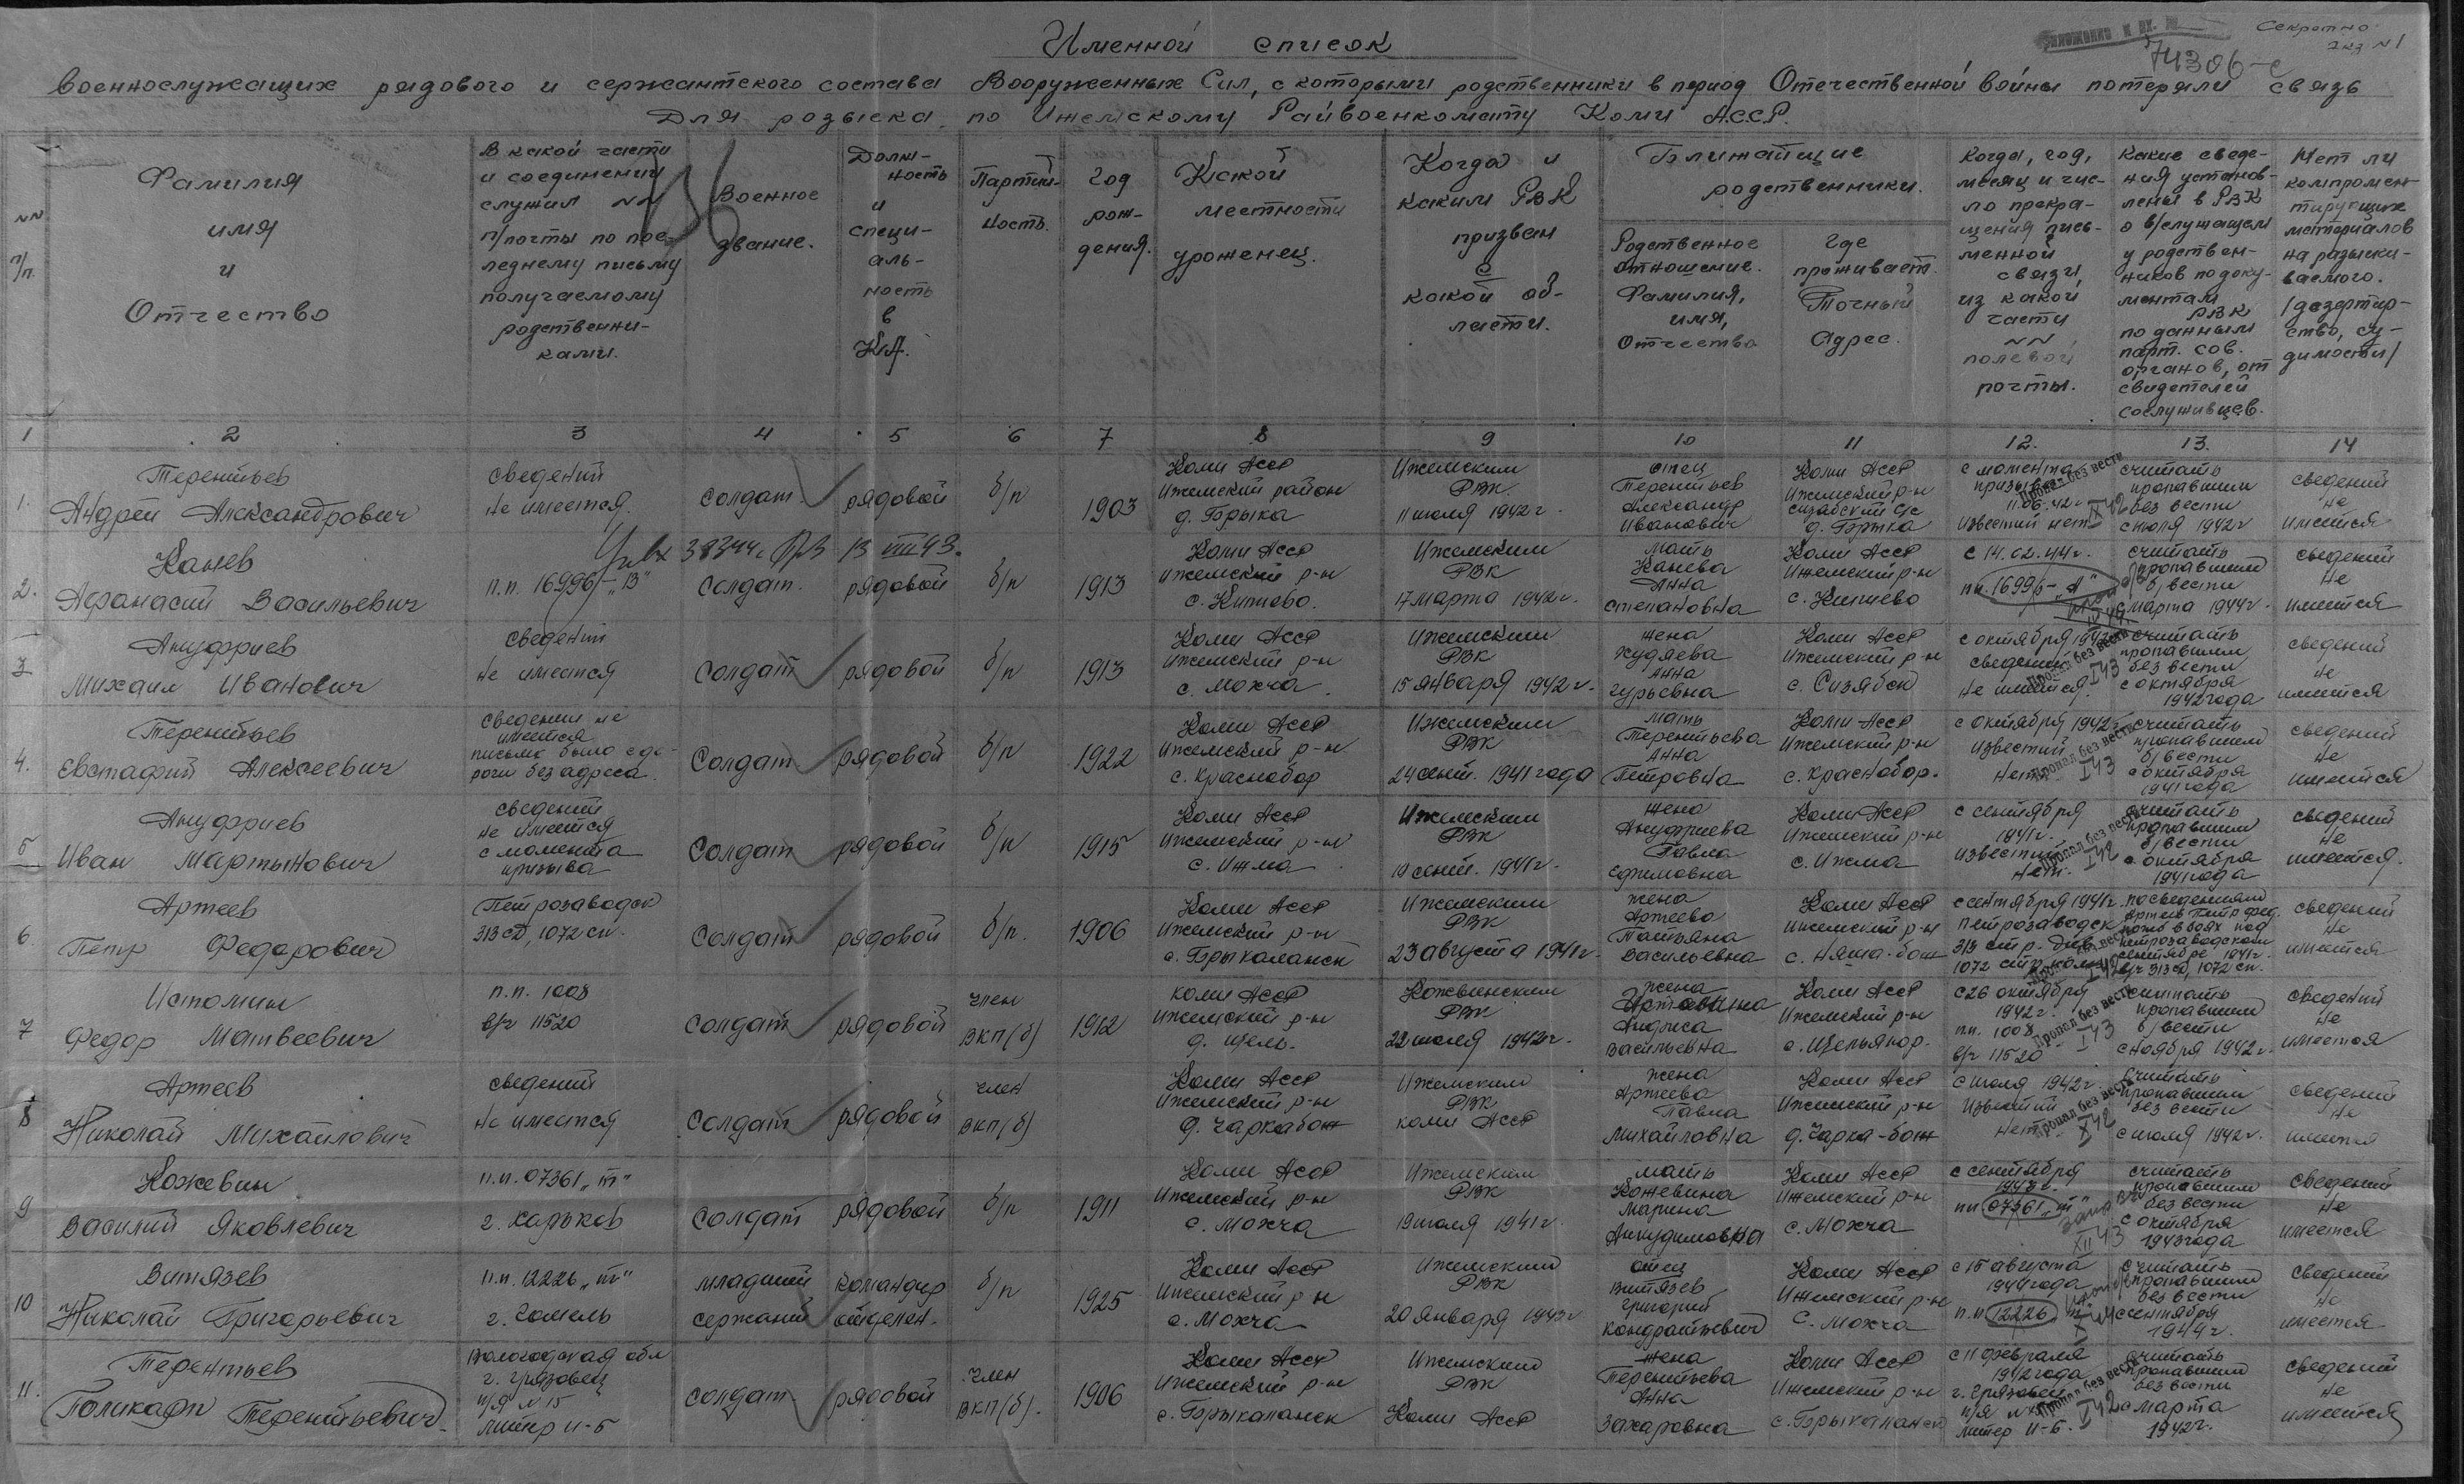 Секретно
экз N 1
74306-с
Именной список
военнослужащих рядового и сержантского состава Вооруженных Сил, с которыми родственники в период Отечественной войны потеряли связь
Для розыска по Ижемскому Райвоенкомату Коми А.С.С.Р.
NN
п/п.
Фамилия
имя
и
Отчество
В какой части
и соединении
служил NN
п/почты по пос-
леднему письму
получаемому
родственни-
ками.
Военное
звание.
Долж-
ность
и
специ-
аль-
ность
в
К.А.
Партий-
ность.
Год
рож-
дения.
Какой
местности
уроженец.
Когда и
каким РВК
призван
с
какой об-
ласти.
Ближайшие
родственники.
Родственное
отношение.
Фамилия,
имя,
Отчество
Где
проживает.
Точный
Адрес.
Когда, год,
месяц и чис-
ло прекра-
щения пись-
менной
связи,
из какой
части
NN
полевой
почты.
Какие сведе-
ния установ-
лены в РВК
о в/служащем
у родствен-
ников по доку-
ментам
РВК
по данным
парт. сов.
органов, от
свидетелей
сослуживцев.
Нет ли
компромен-
тирующих
материалов
на разыски-
ваемого.
/дезертир-
ство, су-
димости/
1 2 3 4 5 6 7 8 9 10 11 12. 13. 14
1.
Терентьев
Андрей Александрович
сведений
не имеется.
солдат
рядовой
б/п
1903
Коми Асср
Ижемский район
д. Брыка
Ижемским
РВК.
11 июля 1942 г.
отец
Терентьев
Александр
Иванович
Коми Асср
Ижемский р-н
сизябский с/с
с момента
призыва
11.06.42 г
Известий нет
Пропал без вести
считать
пропавшим
без вести
с июля 1942 г
сведений
не
имеется
2.
Канев
Афанасий Васильевич
п.п. 16996 - "В"
солдат.
рядовой
б/п
1913
Коми Асср
Ижемский р-н
с. Кипиево.
Ижемским
РВК
17 марта 1942 г.
мать
Канева
Анна
степановна
Коми Асср
Ижемский р-н
с. Кипиево
с 14.02.44 г.
пп. 16996 - "А"
считать
пропавшим
б/вести
с марта 1944 г.
сведений
не
имеется
3
Ануфриев
Михаил Иванович
сведений
не имеется
солдат
рядовой
б/п
1913
Коми Асср
Ижемский р-н
с. Мохча
Ижемским
РВК
15 января 1942 г.
жена
Худяева
Анна
гурьевна
Коми Асср
Ижемский р-н
с. Сизябск
с октября 1942
сведений
не имеется.
Пропал без вести
I 43
считать
пропавшим
без вести
с октября
1942 года
сведений
не
имеется
4.
Терентьев
Евстафий Алексеевич
сведений не
имеется
письмо было с до-
роги без адреса.
Солдат
рядовой
б/п
1922
Коми Асср
Ижемский р-н
с. Краснобор
Ижемским
РВК
24 сент. 1941 года
мать
Терентьева
Анна
Петровна
Коми Асср
Ижемский р-н
с. Краснобор.
с октября 1942
Известий
нет.
Пропал без вести
I 43
считать
пропавшим
б/вести
с октября
1941 года
сведений
не
имеется
5
Ануфриев
Иван Мартынович
сведений
не имеется
с момента
призыва
Солдат
рядовой
б/п
1915
Коми Асср
Ижемский р-н
с. Ижма
Ижемским
РВК
10 сент. 1941 г.
жена
Ануфриева
Павла
Ефимовна
Коми Асср
Ижемский р-н
с. Ижма
с сентября
1941 г.
известий
нет.
Пропал без вести
I 42
считать
пропавшим
б/вести
с октября
1941 года
сведений
не
имеется.
6.
Артеев
Петр Федорович
Петрозаводск
313 сд, 1072 сп.
Солдат
рядовой
б/п.
1906
Коми Асср
Ижемский р-н
с. Брыкаланск
Ижемским
РВК
23 августа 1941 г.
жена
Артеева
Татьяна
Васильевна
Коми Асср
Ижемский р-н
с. Няша-бож
с сентября 1941 г.
Петрозаводск
313 стр. див.
1072 стр. полк
по сведениям
Артеев Петр Фед.
погиб в боях под
петрозаводском
сентябре 1941 г.
в/ч 313 сд, 1072 сп.
сведений
не
имеется
7
Истомин
Федор Матвеевич
п.п. 1008
в/ч 11520
солдат
рядовой
член
ВКП(б)
1912
Коми Асср
Ижемский р-н
д. Щель.
Кожвинским
РВК
22 июля 1942 г.
жена
Васильевна
Коми Асср
Ижемский р-н
с. Щельяюр.
с 26 октября
1942 г.
пп. 1008
в/ч 11520
Пропал без вести
I 43
считать
пропавшим
б/вести
с ноября 1942 г.
сведений
не
имеется
8
Артеев
Николай Михайлович
сведений
не имеется
солдат
рядовой
член
ВКП(б)
Коми Асср
Ижемский р-н
д. Чаркабож
Ижемским
РВК
Коми Асср
жена
Артеева
Павла
Михайловна
Коми Асср
Ижемский р-н
д. Чарка-бож
с июля 1942 г.
Известий
нет.
Пропал без вести
X 42
считать
пропавшим
без вести
с июля 1942 г.
сведений
не
имеется
9
Кожевин
Василий Яковлевич
п.п. 07361 "т"
г. Харьков
солдат
рядовой
б/п
1911
Коми Асср
Ижемский р-н
с. Мохча
Ижемским
РВК
19 июля 1941 г.
мать
Кожевина
Марина
Анкудимовна
Коми Асср
Ижемский р-н
с. Мохча
с сентября
1943 г.
пп 07361 "т"
XII 43
считать
пропавшим
без вести
с октября
1943 года
сведений
не
имеется
10
Витязев
Николай Григорьевич
п.п. 12226 "т"
г. Гомель
младший
сержант
командир
отделен.
б/п
1925
Коми Асср
Ижемский р-н
с. Мохча
Ижемский
РВК
20 января 1943 г
отец
Витязев
Григорий
Кондратьевич
Коми Асср
Ижемский р-н
с. Мохча
с 15 августа
1944 года
п.п 12226 "т"
считать
пропавшим
без вести
с сентября
1944 г.
сведений
не
имеется
11.
Терентьев
Поликарп Терентьевич
Вологодская обл
г. Грязовец
п/я N 15
литер И-Б
солдат
рядовой
член
ВКП(б).
1906
Коми Асср
Ижемский р-н
с. Брыкаланск
Ижемский
РВК
Коми Асср
жена
Терентьева
Анна
Захаровна
Коми Асср
Ижемский р-н
с. Брыкаланск
с 11 февраля
1942 года
г. Грязовец
литер И-Б.
Пропал без вести
считать
пропавшим
без вести
с марта
1942 г.
сведений
не
имеется